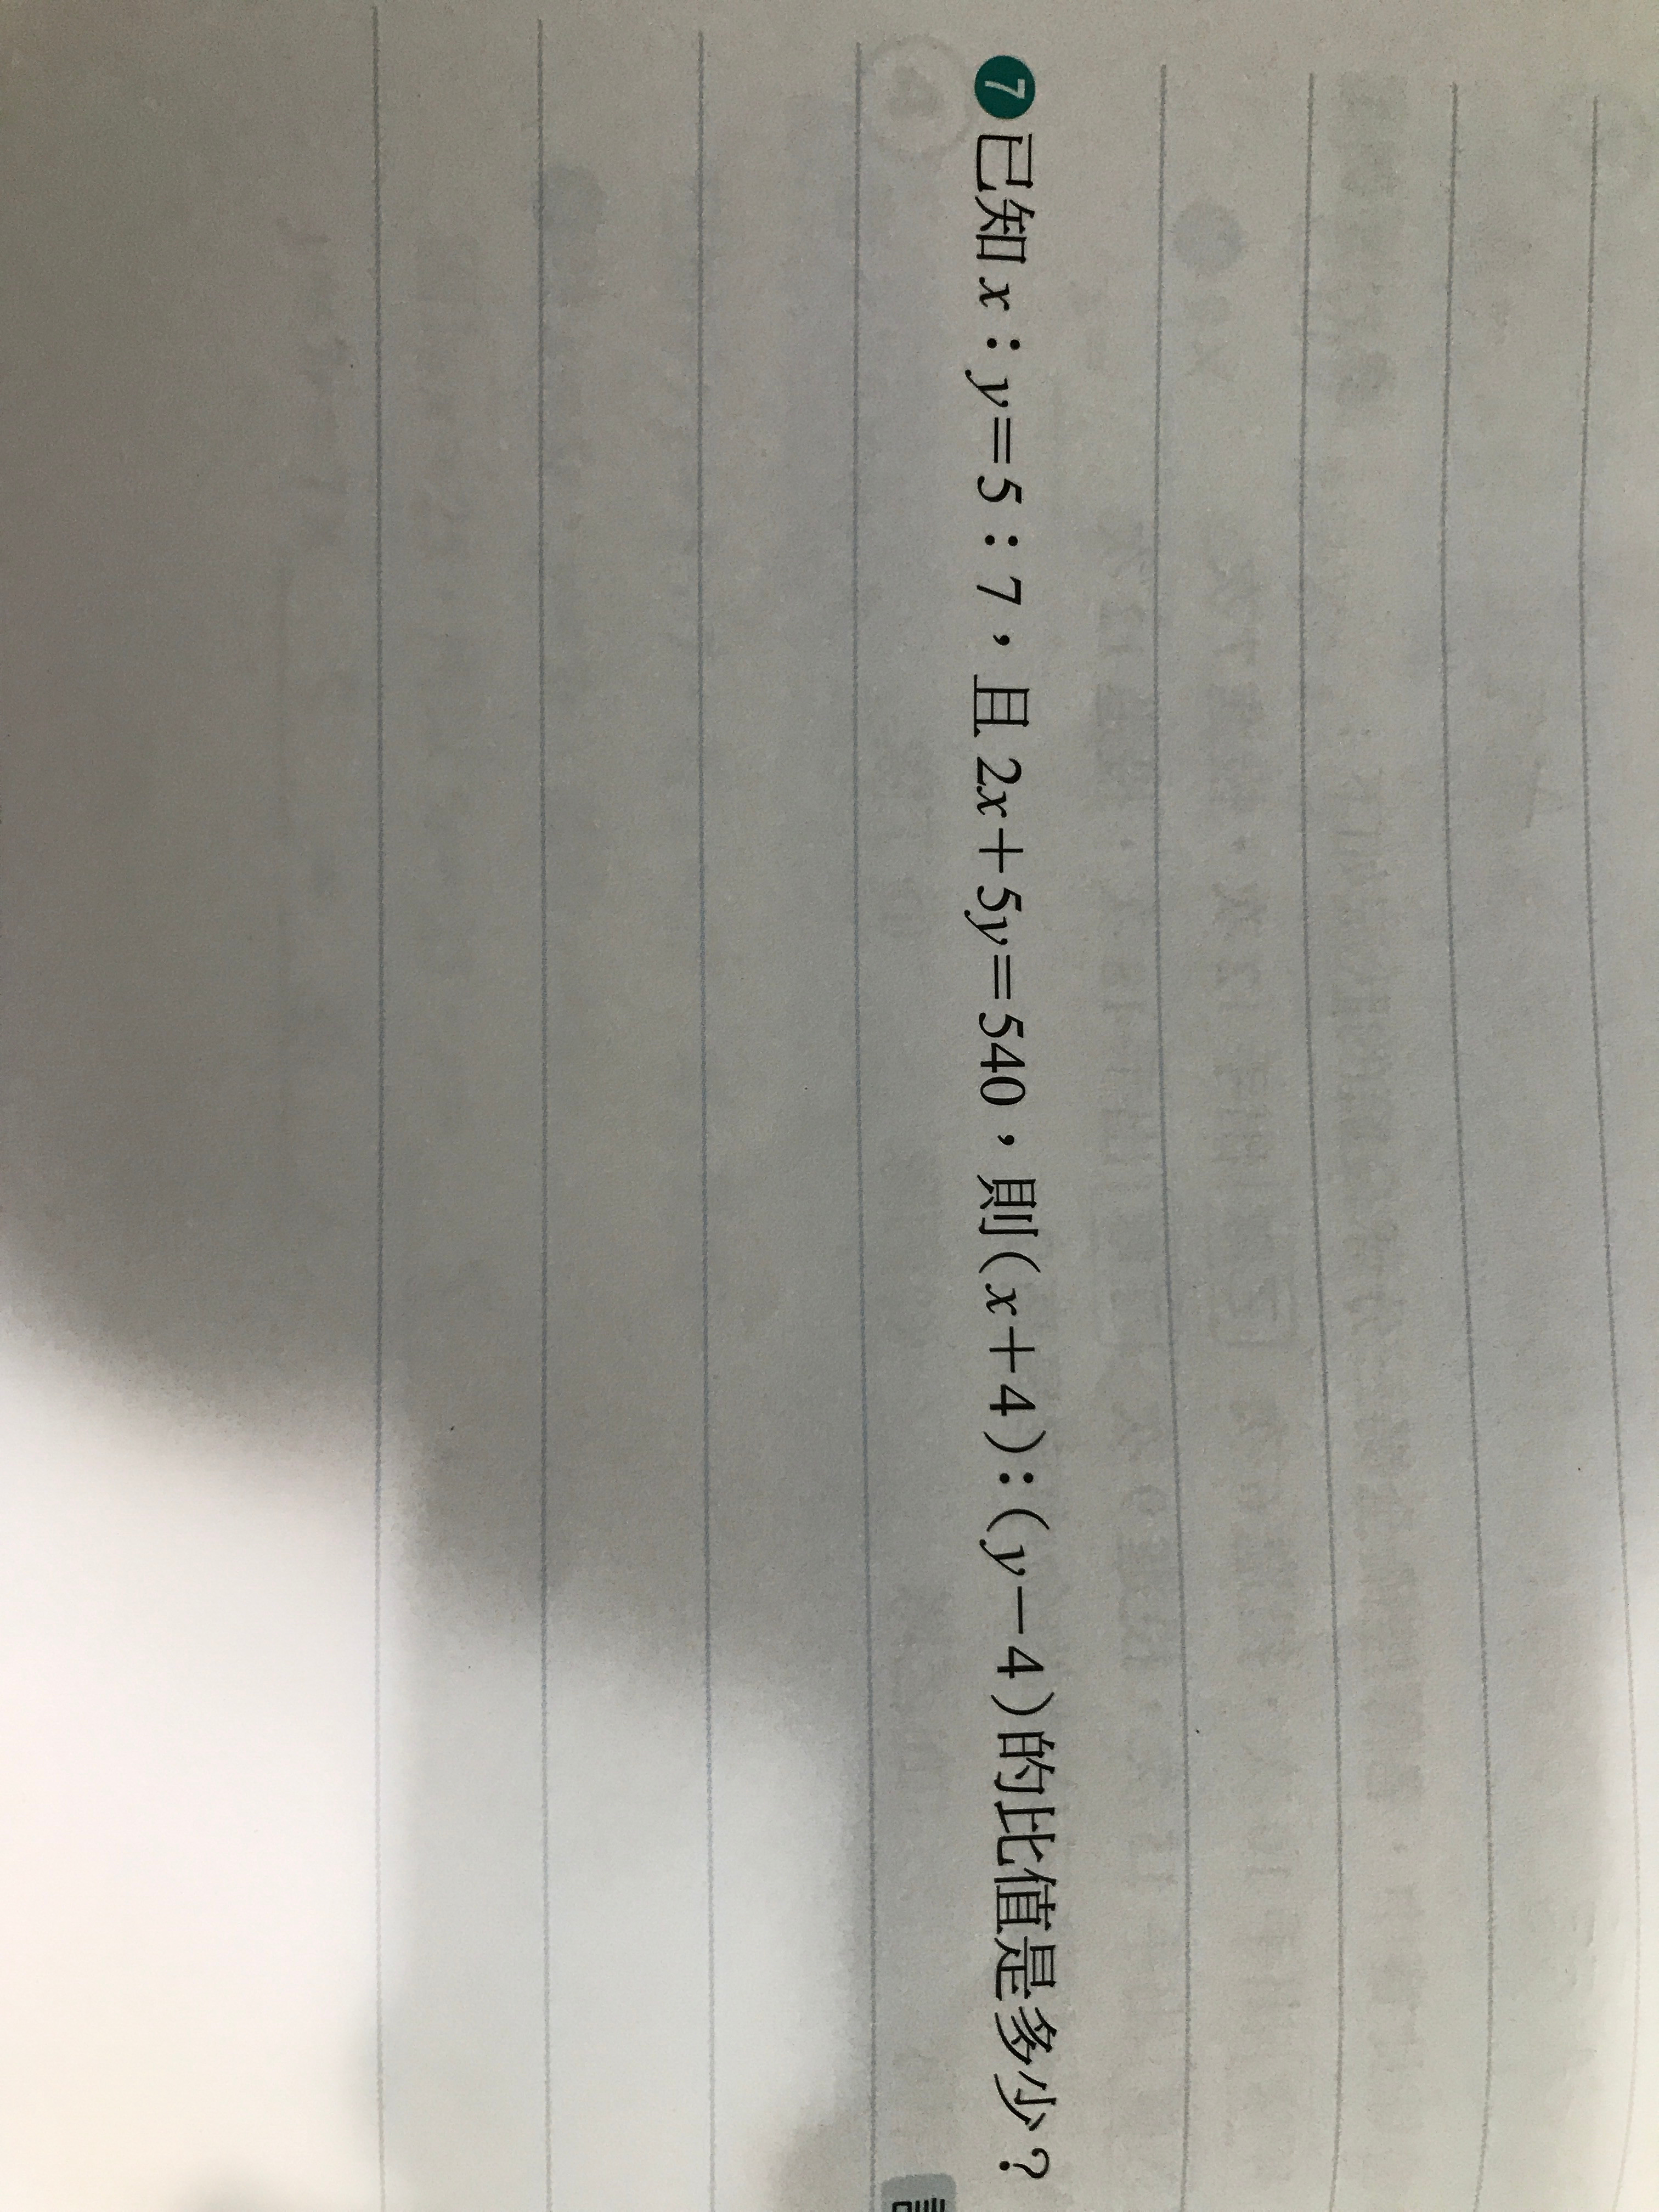 7 已知x：y=5：7，且2x+5y=540，則(x+4)：(y-4)的比值是多少？